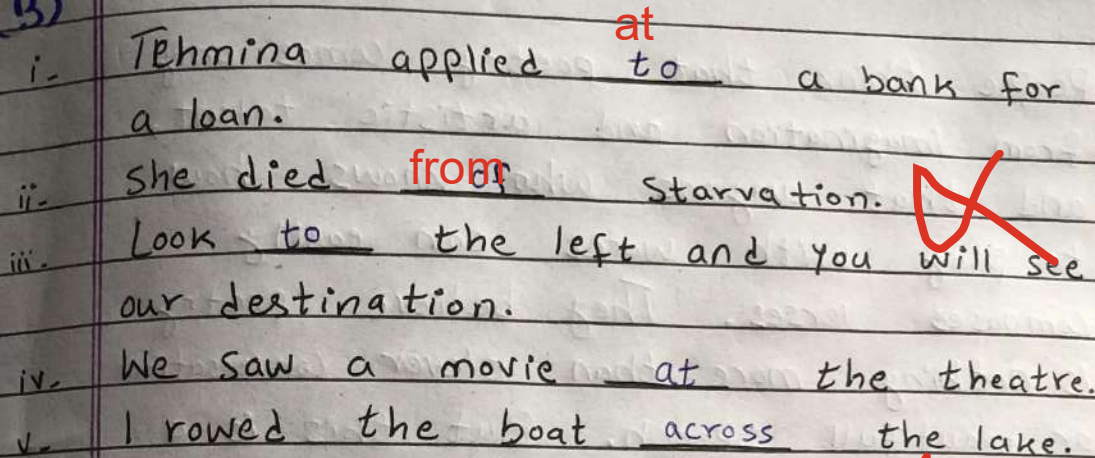 B)
at
i- Tehmina applied to a bank for
a loan.
from
ii- She died of Starvation.
iii- Look to the left and you will see
our destination.
iv- We saw a movie at the theatre.
v- I rowed the boat across the lake.